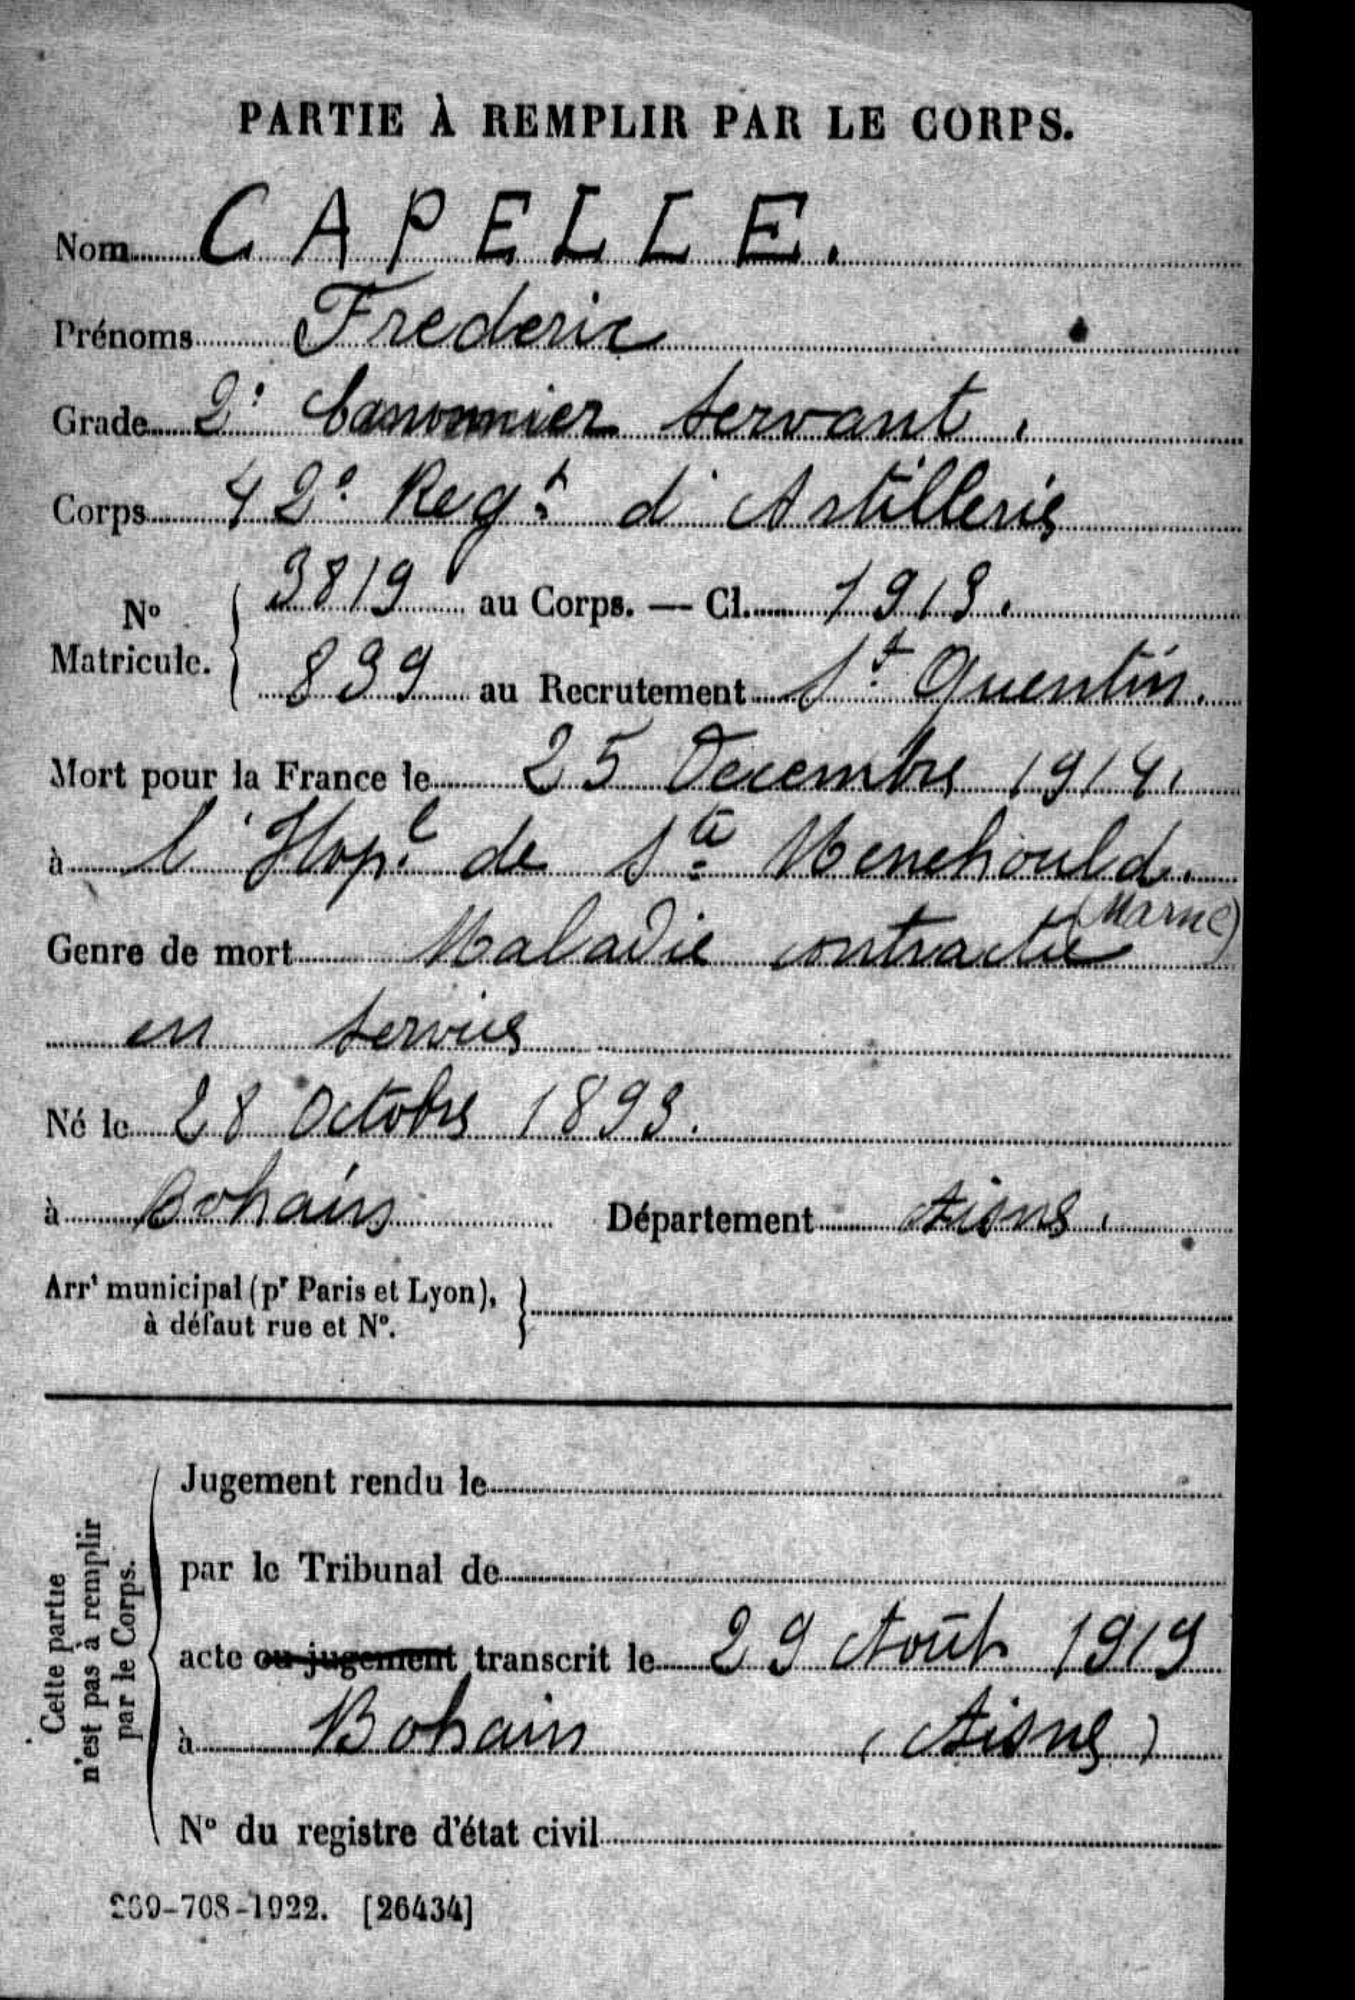 PARTIE À REMPLIR PAR LE CORPS.
Nom CAPELLE.
Prénoms Frederic
Grade 2e Canonnier servant.
Corps 42e Regt d'Artillerie
No Matricule. 3819 au Corps. — Cl. 1913.
839 au Recrutement St Quentin.
Mort pour la France le 25 Decembre 1914.
à l'Hopl de Ste Menehould.
(Marne)
Genre de mort Maladie contractée
en service
Né le 28 Octobre 1893.
à Bohain Département Aisne.
Arrt municipal (pr Paris et Lyon),
à défaut rue et No.
Cette partie
n'est pas à remplir
par le Corps.
Jugement rendu le
par le Tribunal de
acte ou jugement transcrit le 29 Août 1919
à Bohain (Aisne)
No du registre d'état civil
269-708-1922. [26434]